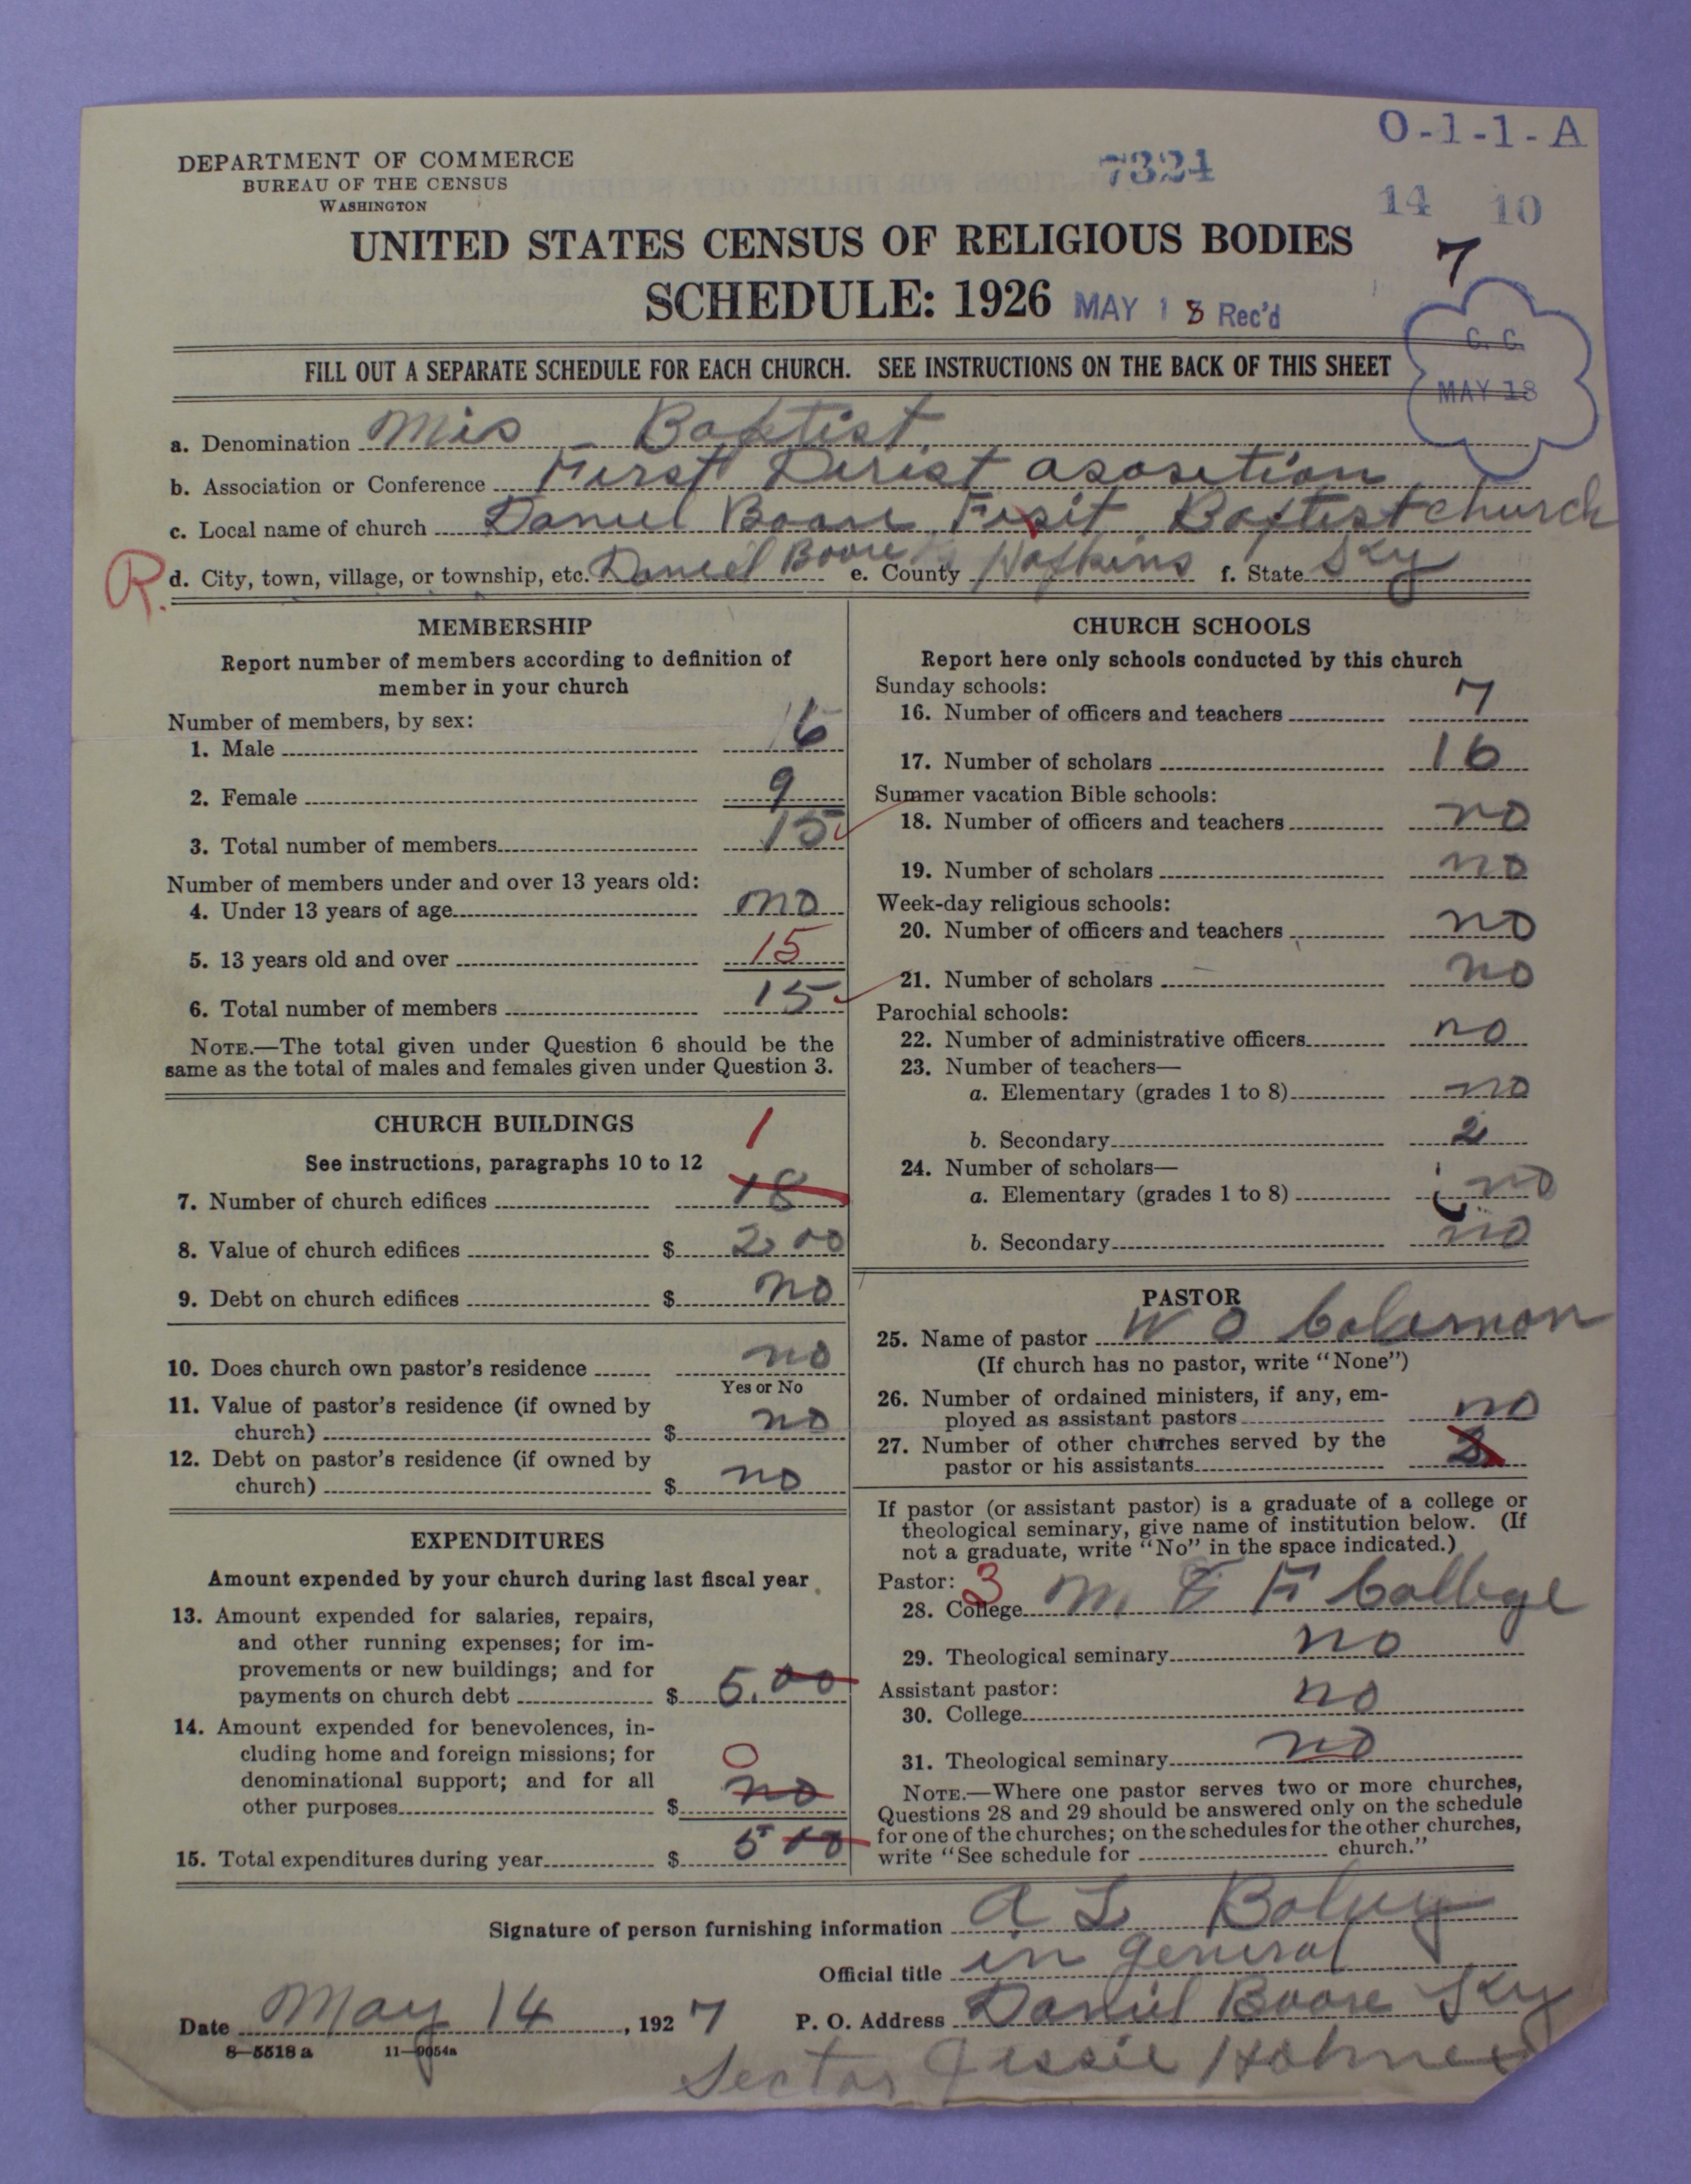 O-1-1-A
DEPARTMENT OF COMMERCE
BUREAU OF THE CENSUS
WASHINGTON
7324
14 10
UNITED STATES CENSUS OF RELIGIOUS BODIES
7
SCHEDULE: 1926 MAY 18 Rec'd
C. C.
MAY 18
FILL OUT A SEPARATE SCHEDULE FOR EACH CHURCH. SEE INSTRUCTIONS ON THE BACK OF THIS SHEET
a. Denomination Mis - Baptist
b. Association or Conference First Dirist asosetion
c. Local name of church Daniel Boone Baptist church
R. d. City, town, village, or township, etc. Daniel Boone e. County Hopkins f. State Ky
MEMBERSHIP
Report number of members according to definition of
member in your church
Number of members, by sex:
1. Male 6
2. Female 9
3. Total number of members 15
Number of members under and over 13 years old:
4. Under 13 years of age no
5. 13 years old and over 15
6. Total number of members 15
NOTE.—The total given under Question 6 should be the
same as the total of males and females given under Question 3.
CHURCH BUILDINGS
1
See instructions, paragraphs 10 to 12
7. Number of church edifices 18
8. Value of church edifices $ 200
9. Debt on church edifices $ no
10. Does church own pastor's residence no
Yes or No
11. Value of pastor's residence (if owned by
church) $ no
12. Debt on pastor's residence (if owned by
church) $ no
EXPENDITURES
Amount expended by your church during last fiscal year
13. Amount expended for salaries, repairs,
and other running expenses; for im-
provements or new buildings; and for
payments on church debt $ 5.00
14. Amount expended for benevolences, in-
cluding home and foreign missions; for 0
denominational support; and for all
other purposes $ no
15. Total expenditures during year $ 5 00
CHURCH SCHOOLS
Report here only schools conducted by this church
Sunday schools:
16. Number of officers and teachers 7
17. Number of scholars 16
Summer vacation Bible schools:
18. Number of officers and teachers no
19. Number of scholars no
Week-day religious schools:
20. Number of officers and teachers no
21. Number of scholars no
Parochial schools:
22. Number of administrative officers no
23. Number of teachers—
a. Elementary (grades 1 to 8) no
b. Secondary 2
24. Number of scholars—
a. Elementary (grades 1 to 8) no
b. Secondary no
PASTOR
25. Name of pastor W O Coleman
(If church has no pastor, write "None")
26. Number of ordained ministers, if any, em-
ployed as assistant pastors no
27. Number of other churches served by the
pastor or his assistants
If pastor (or assistant pastor) is a graduate of a college or
theological seminary, give name of institution below. (If
not a graduate, write "No" in the space indicated.)
Pastor: 3
28. College M & F College
29. Theological seminary no
Assistant pastor:
30. College no
31. Theological seminary no
NOTE.—Where one pastor serves two or more churches,
Questions 28 and 29 should be answered only on the schedule
for one of the churches; on the schedules for the other churches,
write "See schedule for church."
Signature of person furnishing information A L
Official title in general
Date May 14, 1927 P. O. Address Daniel Boone Ky
8-5518 a 11-9054a
Sectar Jessie Holmes